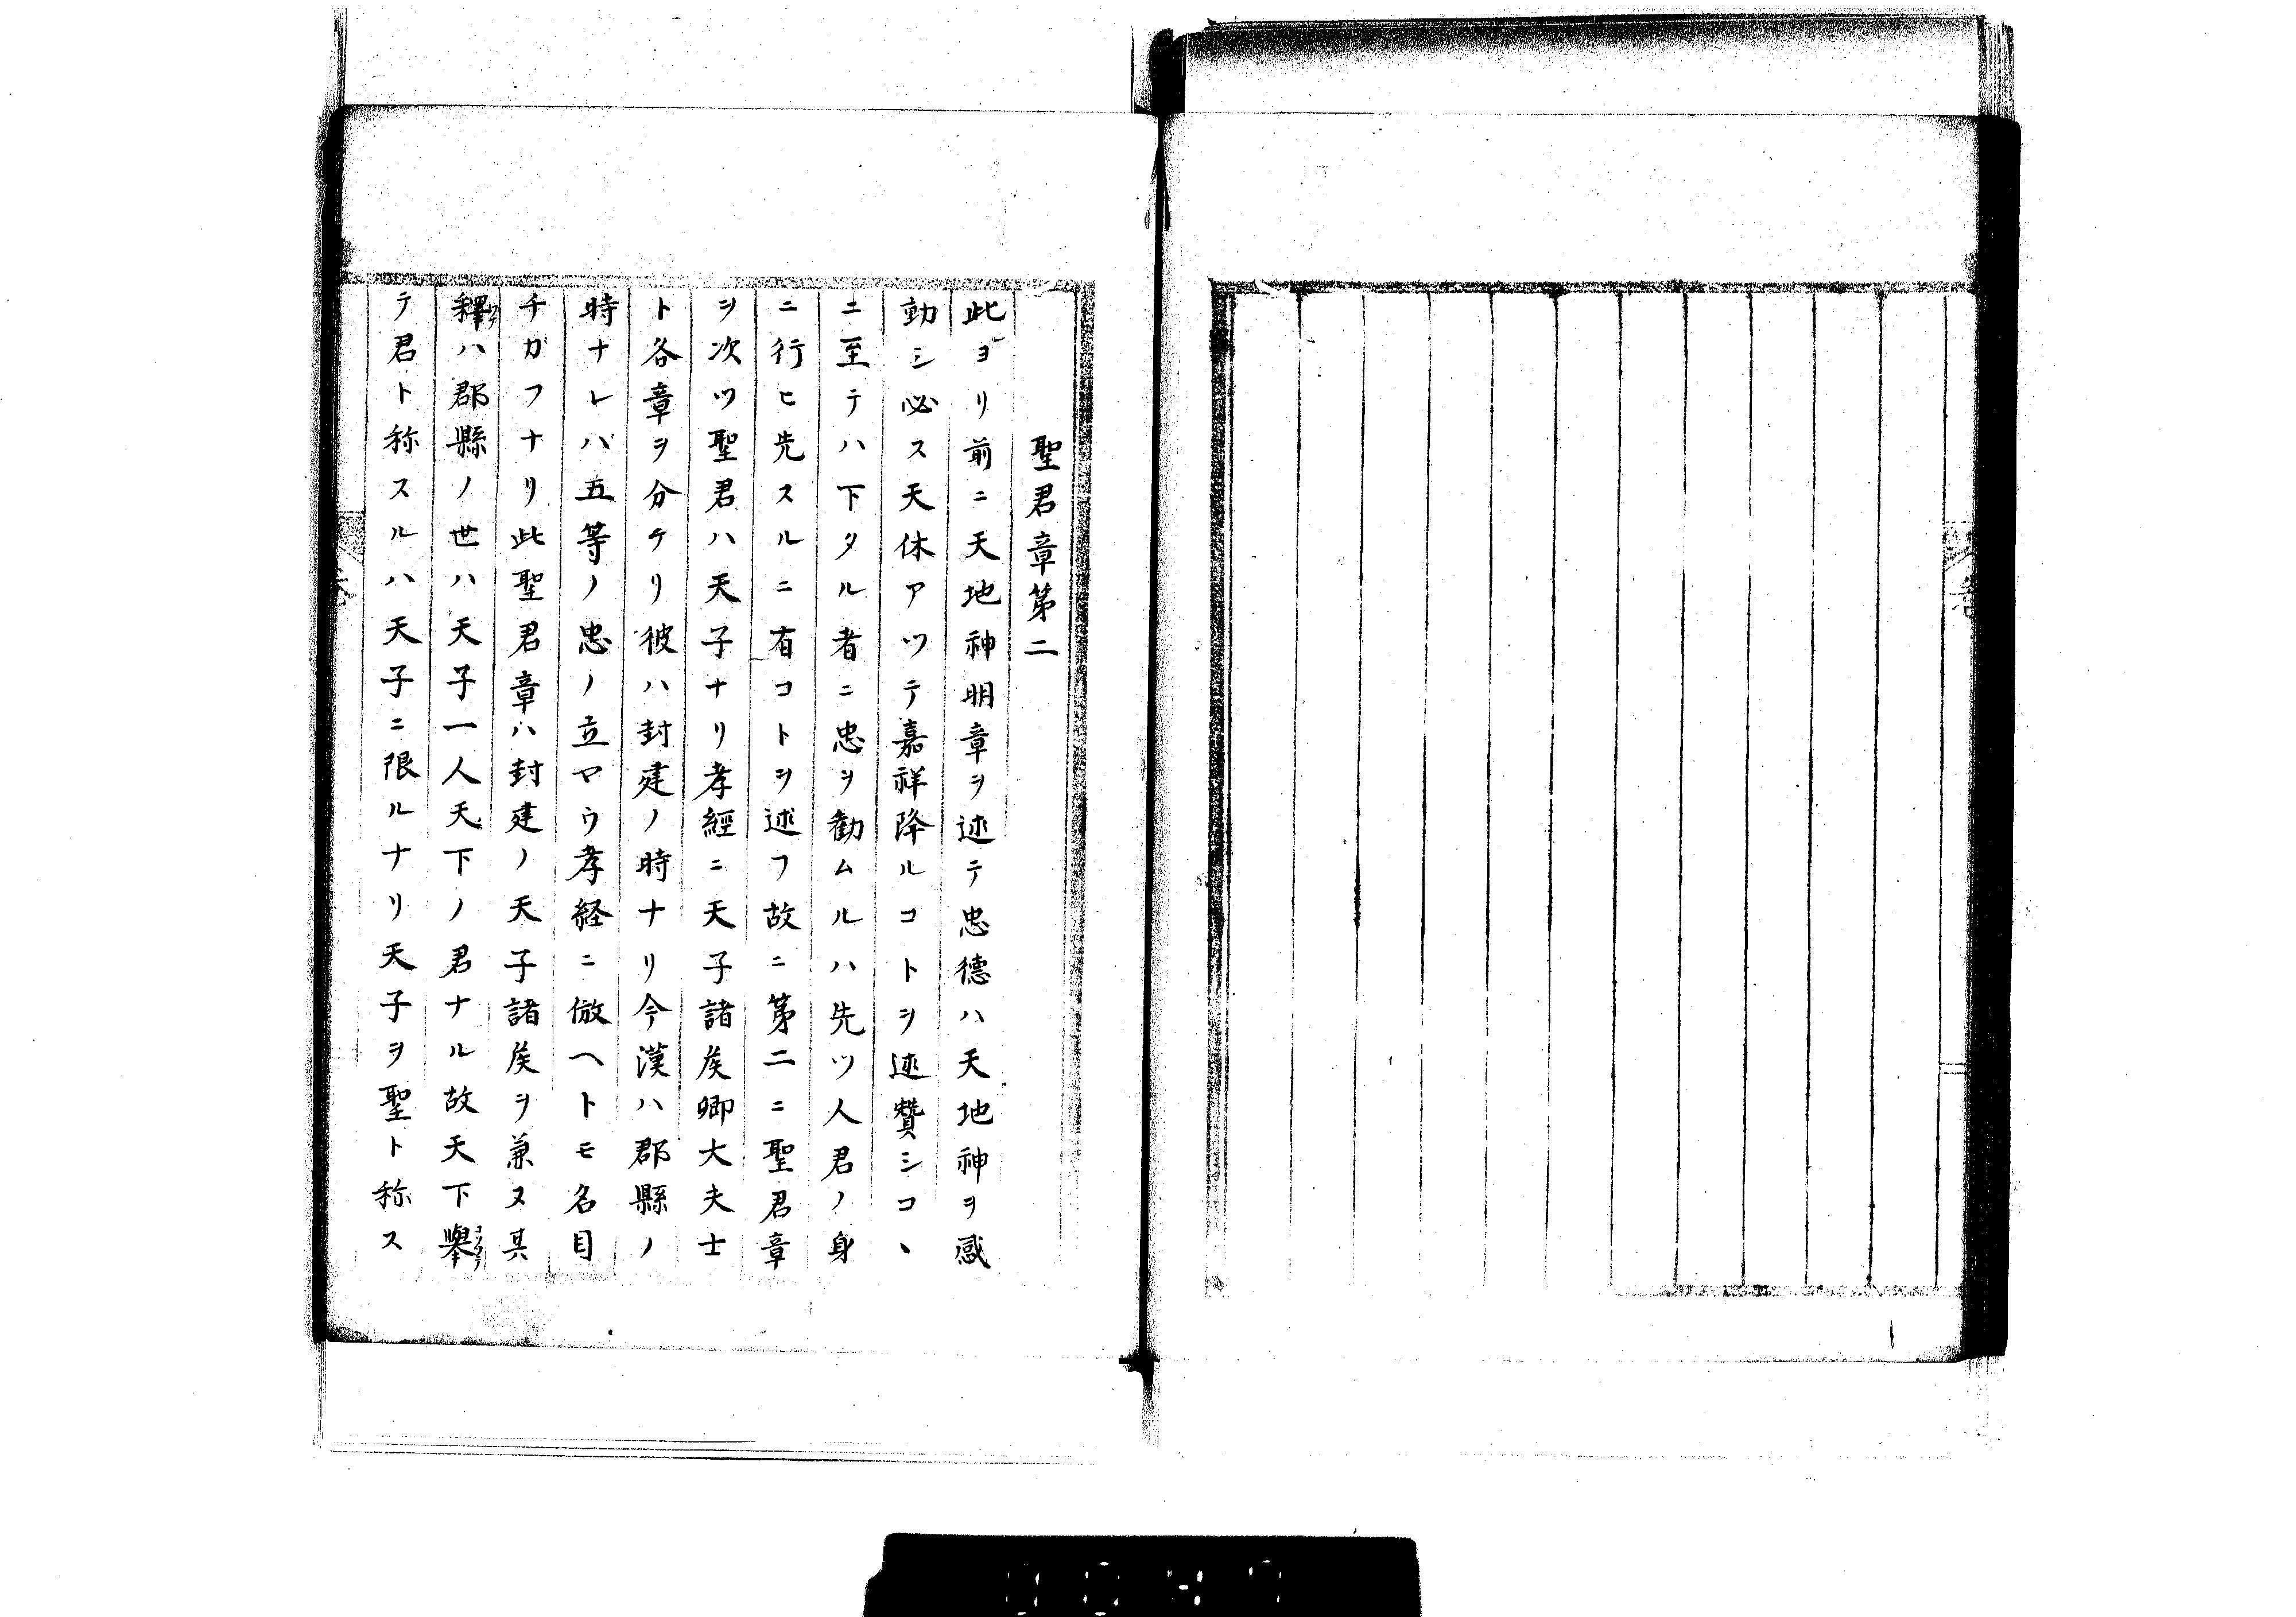 聖君章第二
此ヨリ前ニ天地神明章ヲ述テ忠德ハ天地神ヲ感
動シ必ス天休アツテ嘉祥降ルコトヲ述贊シコヽ
ニ至テハ下タル者ニ忠ヲ勸ムルハ先ツ人君ノ身
ニ行ヒ先スルニ有コトヲ述フ故ニ第二ニ聖君章
ヲ次ツ聖君ハ天子ナリ孝經ニ天子諸矦卿大夫士
ト各章ヲ分テリ彼ハ封建ノ時ナリ今漢ハ郡縣ノ
時ナレバ五等ノ忠ノ立ヤウ孝経ニ倣ヘトモ名目
チガフナリ此聖君章ハ封建ノ天子諸矦ヲ兼ヌ其
釋ハ郡縣ノ世ハ天子一人天下ノ君ナル故天下擧
テ君ト称スルハ天子ニ限ルナリ天子ヲ聖ト称ス